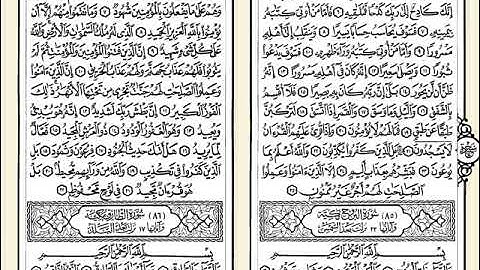 إِنَّكَ كَادِحٌ إِلَىٰ رَبِّكَ كَدْحًا فَمُلَٰقِيهِ ۝٦ فَأَمَّا مَنْ أُوتِيَ كِتَٰبَهُۥ
بِيَمِينِهِۦ ۝٧ فَسَوْفَ يُحَاسَبُ حِسَابًا يَسِيرًا ۝٨ وَيَنقَلِبُ إِلَىٰٓ أَهْلِهِۦ
مَسْرُورًا ۝٩ وَأَمَّا مَنْ أُوتِيَ كِتَٰبَهُۥ وَرَآءَ ظَهْرِهِۦ ۝١٠ فَسَوْفَ يَدْعُوا۟
ثُبُورًا ۝١١ وَيَصْلَىٰ سَعِيرًا ۝١٢ إِنَّهُۥ كَانَ فِىٓ أَهْلِهِۦ مَسْرُورًا ۝١٣ إِنَّهُۥ
ظَنَّ أَن لَّن يَحُورَ ۝١٤ بَلَىٰٓ إِنَّ رَبَّهُۥ كَانَ بِهِۦ بَصِيرًا ۝١٥ فَلَآ أُقْسِمُ
بِٱلشَّفَقِ ۝١٦ وَٱلَّيْلِ وَمَا وَسَقَ ۝١٧ وَٱلْقَمَرِ إِذَا ٱتَّسَقَ ۝١٨ لَتَرْكَبُنَّ
طَبَقًا عَن طَبَقٍ ۝١٩ فَمَا لَهُمْ لَا يُؤْمِنُونَ ۝٢٠ وَإِذَا قُرِئَ عَلَيْهِمُ ٱلْقُرْءَانُ
لَا يَسْجُدُونَ ۝٢١ بَلِ ٱلَّذِينَ كَفَرُوا۟ يُكَذِّبُونَ ۝٢٢ وَٱللَّهُ أَعْلَمُ بِمَا
يُوعُونَ ۝٢٣ فَبَشِّرْهُم بِعَذَابٍ أَلِيمٍ ۝٢٤ إِلَّا ٱلَّذِينَ ءَامَنُوا۟ وَعَمِلُوا۟
ٱلصَّٰلِحَٰتِ لَهُمْ أَجْرٌ غَيْرُ مَمْنُونٍۭ ۝٢٥
(٨٥) سورة البروج مكية
وآياتها ٢٢ نزلت بعد الشمس
بِسْمِ ٱللَّهِ ٱلرَّحْمَٰنِ ٱلرَّحِيمِ
وَهُمْ عَلَىٰ مَا يَفْعَلُونَ بِٱلْمُؤْمِنِينَ شُهُودٌ ۝٧ وَمَا نَقَمُوا۟ مِنْهُمْ إِلَّآ أَن
يُؤْمِنُوا۟ بِٱللَّهِ ٱلْعَزِيزِ ٱلْحَمِيدِ ۝٨ ٱلَّذِى لَهُۥ مُلْكُ ٱلسَّمَٰوَٰتِ وَٱلْأَرْضِ وَٱللَّهُ
عَلَىٰ كُلِّ شَىْءٍ شَهِيدٌ ۝٩ إِنَّ ٱلَّذِينَ فَتَنُوا۟ ٱلْمُؤْمِنِينَ وَٱلْمُؤْمِنَٰتِ ثُمَّ لَمْ
يَتُوبُوا۟ فَلَهُمْ عَذَابُ جَهَنَّمَ وَلَهُمْ عَذَابُ ٱلْحَرِيقِ ۝١٠ إِنَّ ٱلَّذِينَ ءَامَنُوا۟
وَعَمِلُوا۟ ٱلصَّٰلِحَٰتِ لَهُمْ جَنَّٰتٌ تَجْرِى مِن تَحْتِهَا ٱلْأَنْهَٰرُ ذَٰلِكَ
ٱلْفَوْزُ ٱلْكَبِيرُ ۝١١ إِنَّ بَطْشَ رَبِّكَ لَشَدِيدٌ ۝١٢ إِنَّهُۥ هُوَ يُبْدِئُ
وَيُعِيدُ ۝١٣ وَهُوَ ٱلْغَفُورُ ٱلْوَدُودُ ۝١٤ ذُو ٱلْعَرْشِ ٱلْمَجِيدُ ۝١٥ فَعَّالٌ
لِّمَا يُرِيدُ ۝١٦ هَلْ أَتَىٰكَ حَدِيثُ ٱلْجُنُودِ ۝١٧ فِرْعَوْنَ وَثَمُودَ ۝١٨ بَلِ
ٱلَّذِينَ كَفَرُوا۟ فِى تَكْذِيبٍ ۝١٩ وَٱللَّهُ مِن وَرَآئِهِم مُّحِيطٌۢ ۝٢٠ بَلْ
هُوَ قُرْءَانٌ مَّجِيدٌ ۝٢١ فِى لَوْحٍ مَّحْفُوظٍۭ ۝٢٢
(٨٦) سورة الطارق مكية
وآياتها ١٧ نزلت بعد البلد
بِسْمِ ٱللَّهِ ٱلرَّحْمَٰنِ ٱلرَّحِيمِ